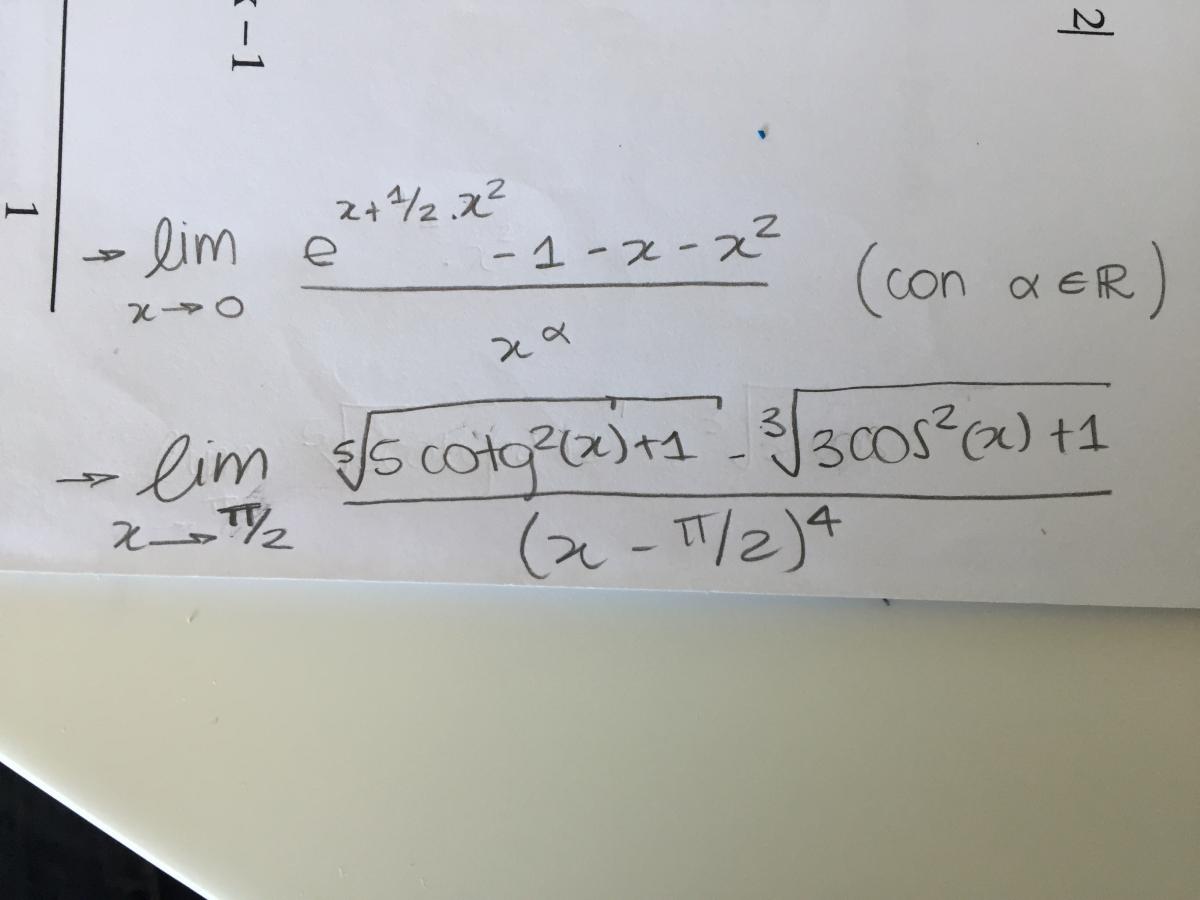 2|
x - 1
1
→ lim x→0 (e^(x+1/2.x²) - 1 - x - x²) / x^α (con α ∈ ℝ)
→ lim x→π/2 (⁵√(5 cotg²(x)+1) - ³√(3cos²(x)+1)) / (x - π/2)⁴